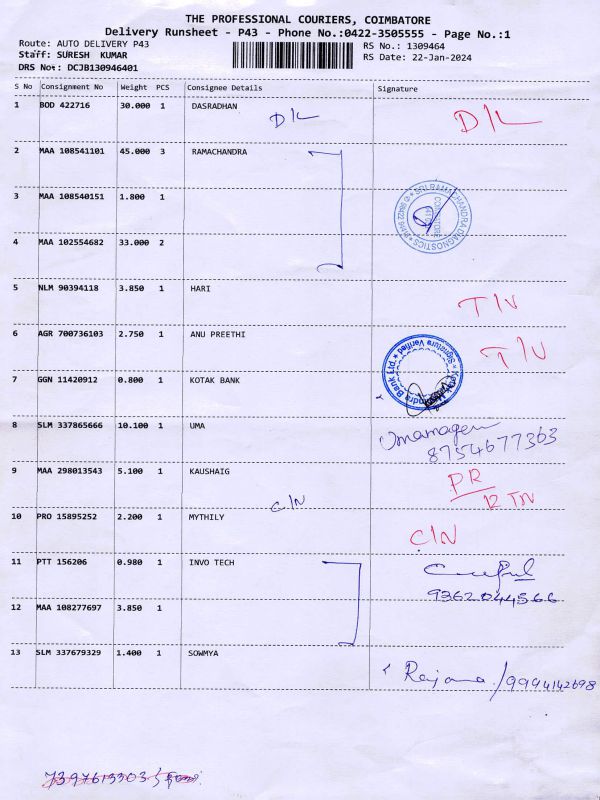 THE PROFESSIONAL COURIERS, COIMBATORE
Delivery Runsheet - P43 - Phone No.:0422-3505555 - Page No.:1
Route: AUTO DELIVERY P43 RS No.: 1309464
Staff: SURESH KUMAR RS Date: 22-Jan-2024
DRS No: DCJB130946401
S No Consignment No Weight PCS Consignee Details Signature
1 BOD 422716 30.000 1 DASRADHAN
D/L D/L
2 MAA 108541101 45.000 3 RAMACHANDRA
3 MAA 108540151 1.800 1
SRI RAMACHANDRA DIAGNOSTICS
COIMBATORE
4 MAA 102554682 33.000 2
5 NLM 90394118 3.850 1 HARI
T/N
6 AGR 700736103 2.750 1 ANU PREETHI
T/N
Kotak Mahindra Bank Ltd. * Signature Verified *
7 GGN 11420912 0.800 1 KOTAK BANK
8 SLM 337865666 10.100 1 UMA
8754677363
9 MAA 298013543 5.100 1 KAUSHAIG
PR
C/N
10 PRO 15895252 2.200 1 MYTHILY
C/N
11 PTT 156206 0.980 1 INVO TECH
9362044566
12 MAA 108277697 3.850 1
13 SLM 337679329 1.400 1 SOWMYA
Rajana /9994142698